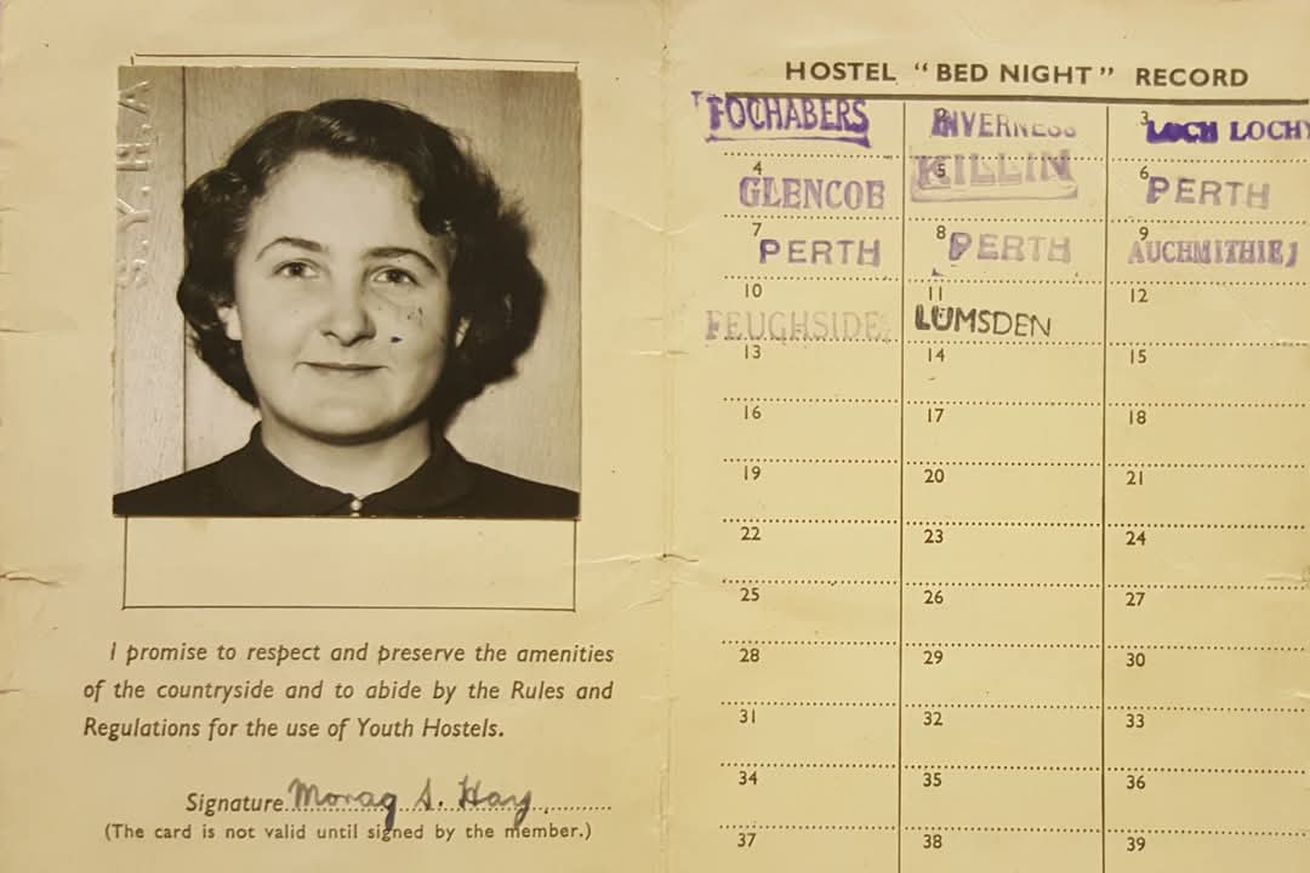 S.Y.H.A
I promise to respect and preserve the amenities
of the countryside and to abide by the Rules and
Regulations for the use of Youth Hostels.
Signature Morag S. Hay
(The card is not valid until signed by the member.)
HOSTEL “BED NIGHT” RECORD
FOCHABERS INVERNESS 3 LOCH LOCHY
4 5 6
GLENCOE KILLIN PERTH
7 8 9
PERTH PERTH AUCHMITHIE
10 11 12
FEUGHSIDE LUMSDEN
13 14 15
16 17 18
19 20 21
22 23 24
25 26 27
28 29 30
31 32 33
34 35 36
37 38 39